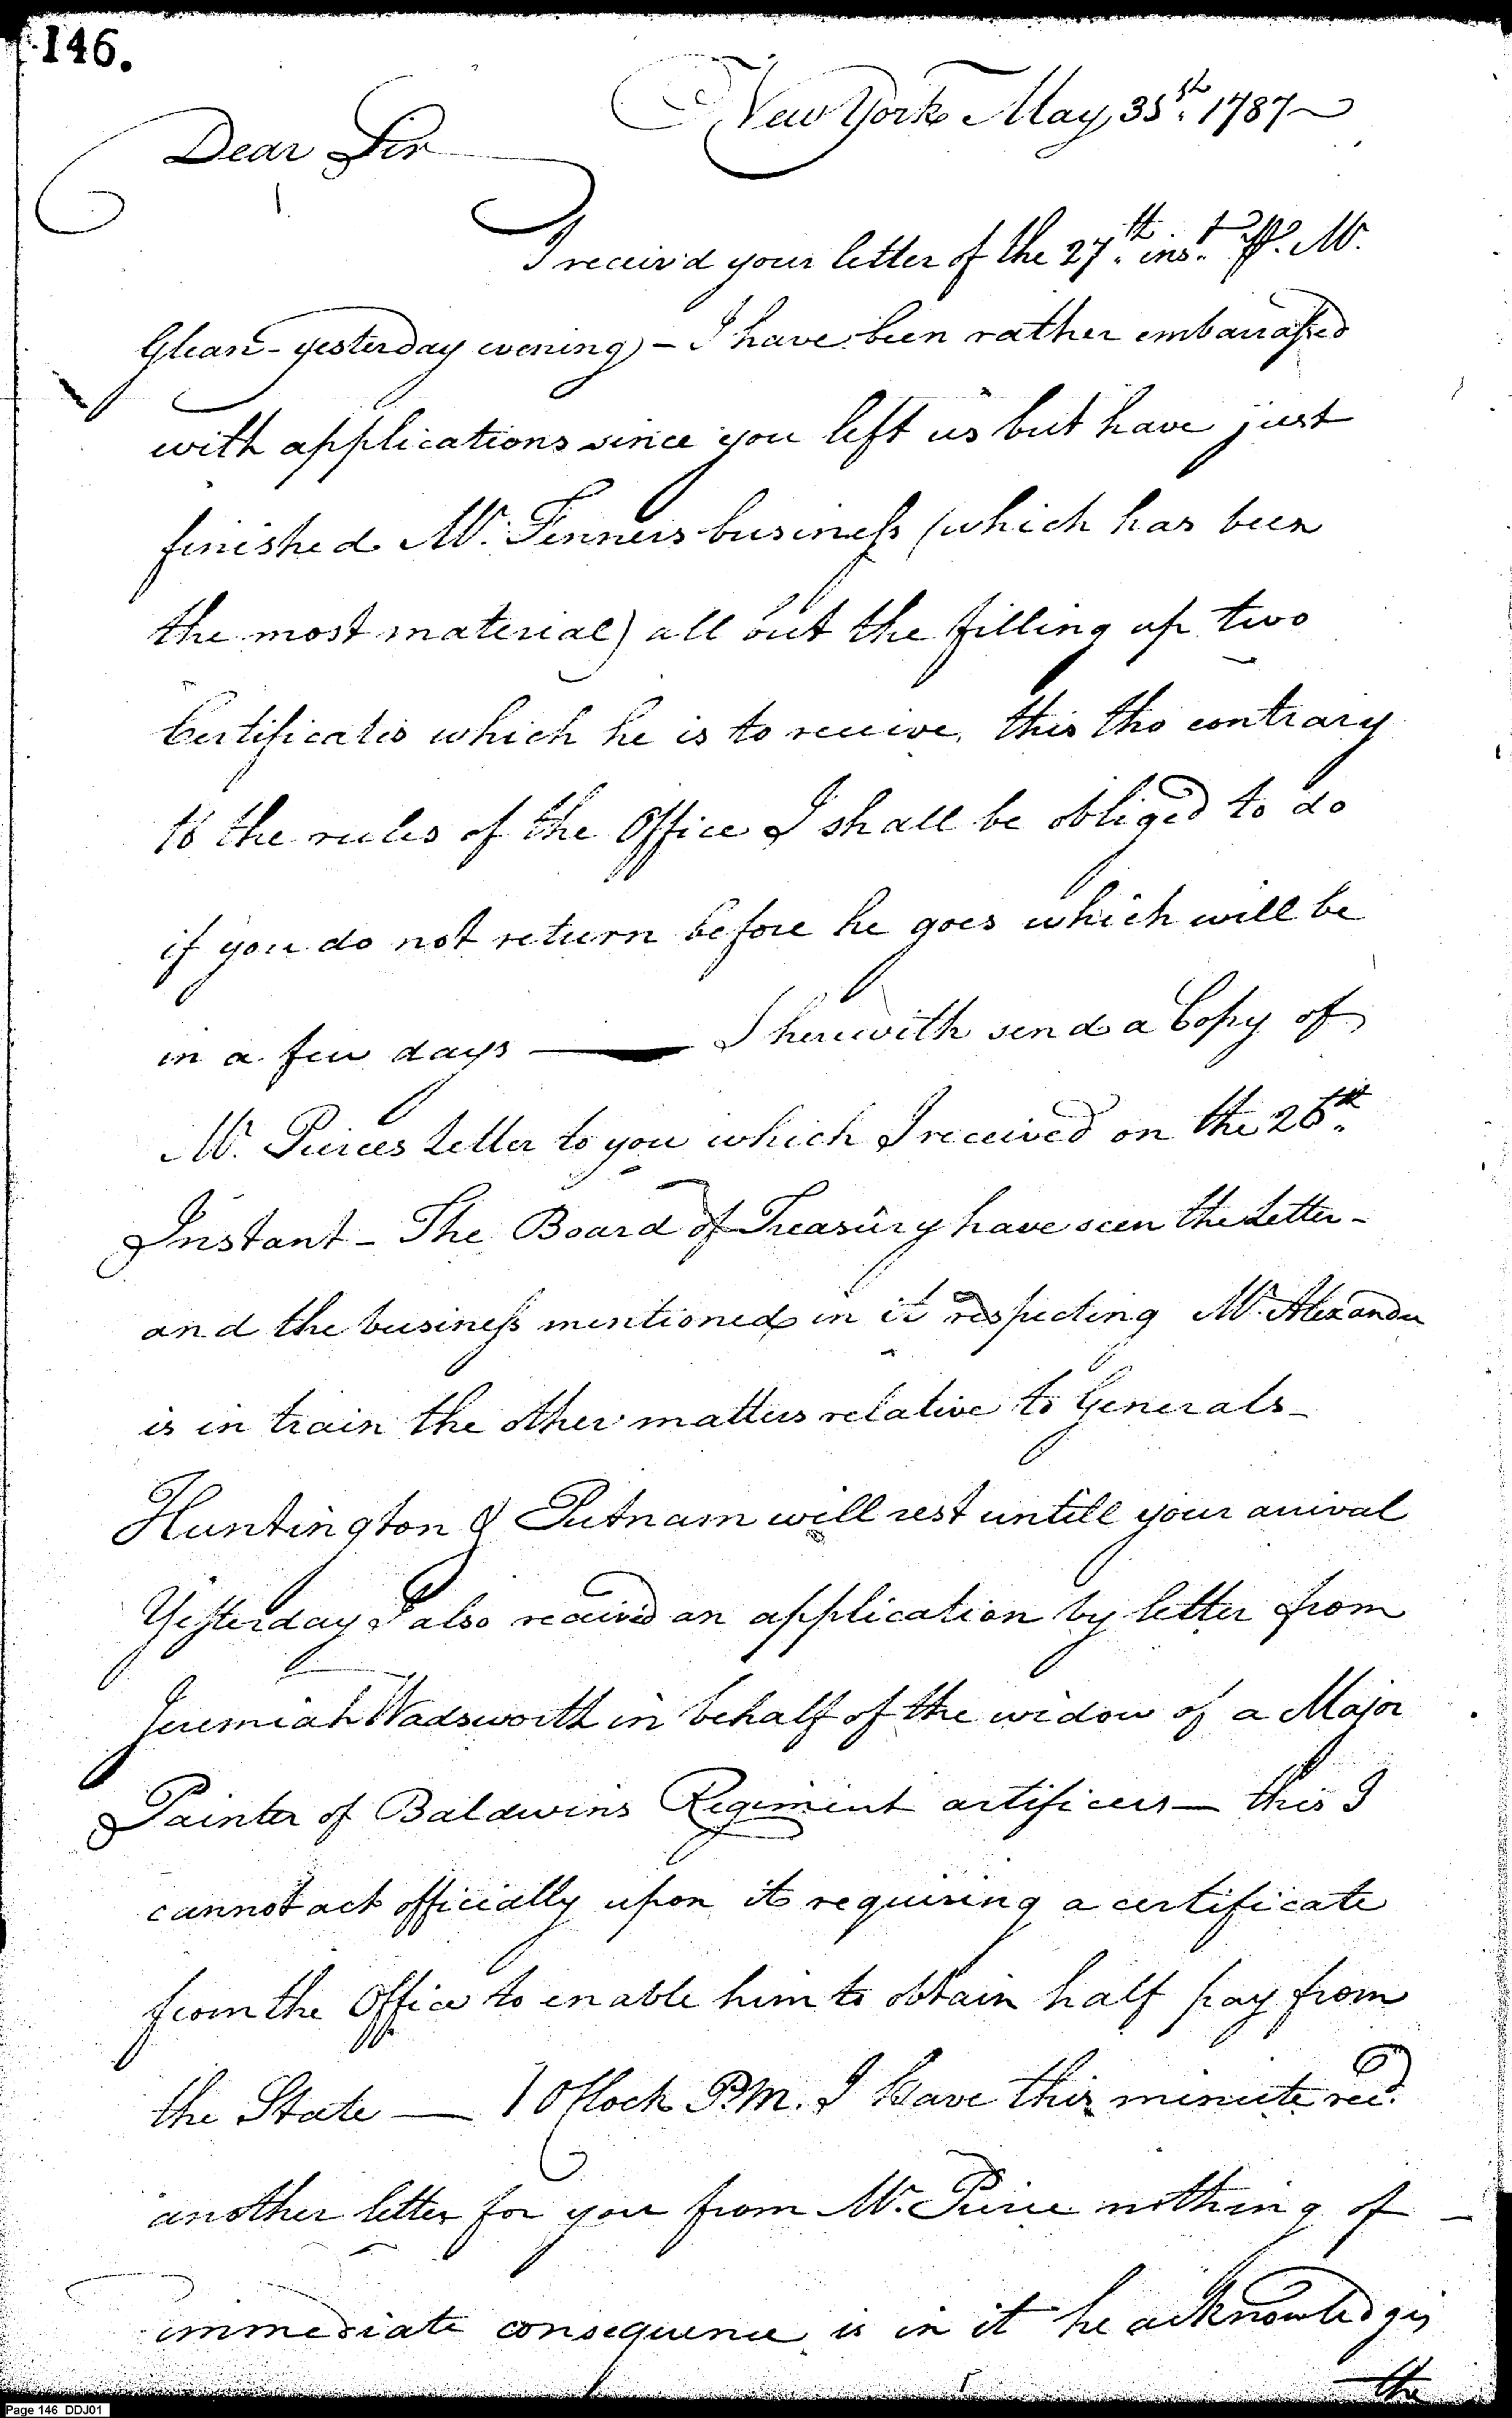 146.
New York May 35st. 1787
Dear Sir
I receiv'd your letter of the 27th. inst. P. Mr.
Glean - yesterday evening - I have been rather embarrassed
with applications since you left us but have just
finished Mr. Fenners business (which has been
the most material) all but the filling up two
Certificates which he is to receive, this tho contrary
to the rules of the Office I shall be obliged to do
if you do not return before he goes which will be
in a few days — I herewith send a Copy of
Mr. Pierces Letter to you which I received on the 26th.
Instant - The Board of Treasury have seen the Letter -
and the business mentioned in it respecting Mr. Alexander
is in train the other matters relative to Generals -
Huntington & Putnam will rest untill your arrival
Yesterday I also received an application by letter from
Jeremiah Wadsworth in behalf of the widow of a Major
Painter of Baldwins Regiment artificers — this I
cannot act officially upon it requiring a certificate
from the Office to enable him to obtain half pay from
the State — 1 OClock P.M. I have this minute recd.
another letter for you from Mr. Pierce nothing of -
immediate consequence is in it he acknowledges
the
Page 146 DDJ01